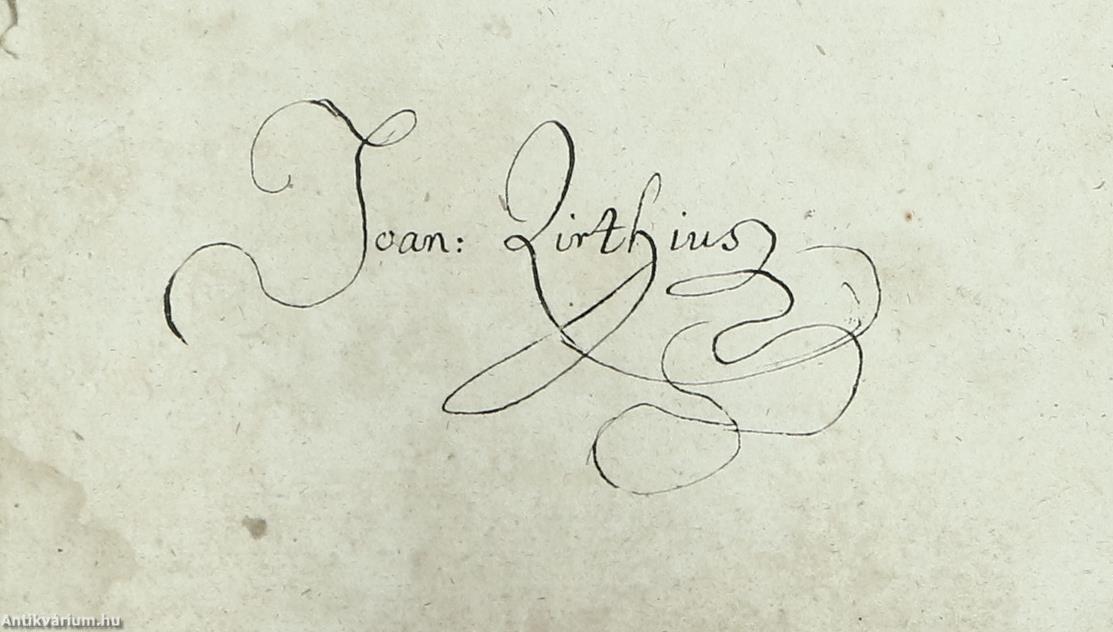 Joan: Zirthius
Antikvárium.hu